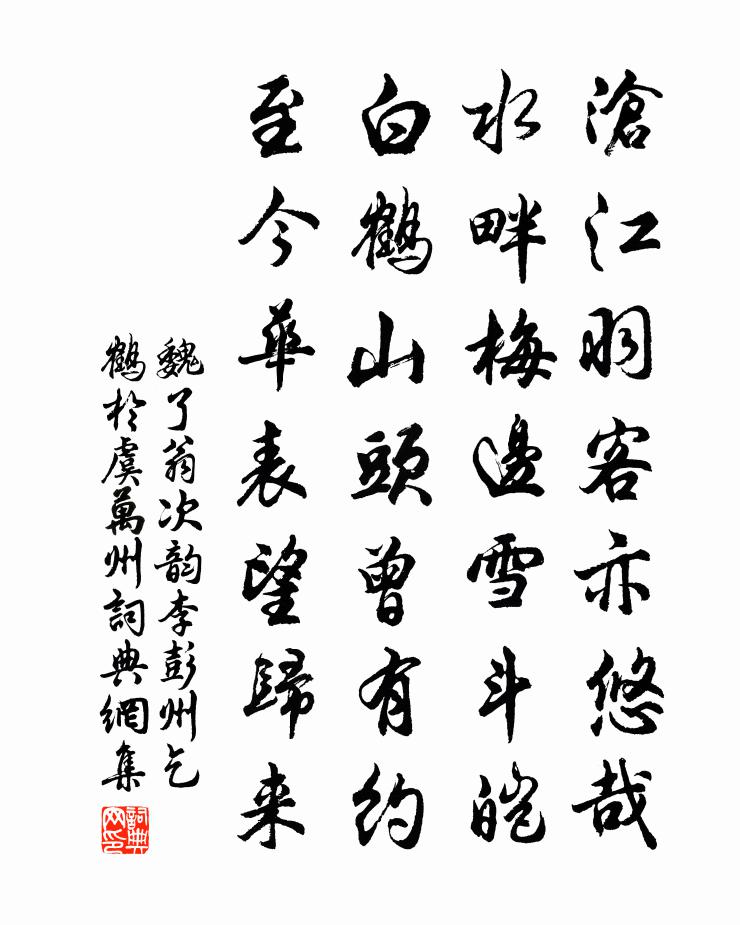 滄江羽客亦悠哉
水畔梅邊雪斗皚
白鶴山頭曾有約
至今華表望歸来
魏了翁次韵李彭州乞
鶴於虞萬州詞典網集
詞典
网印